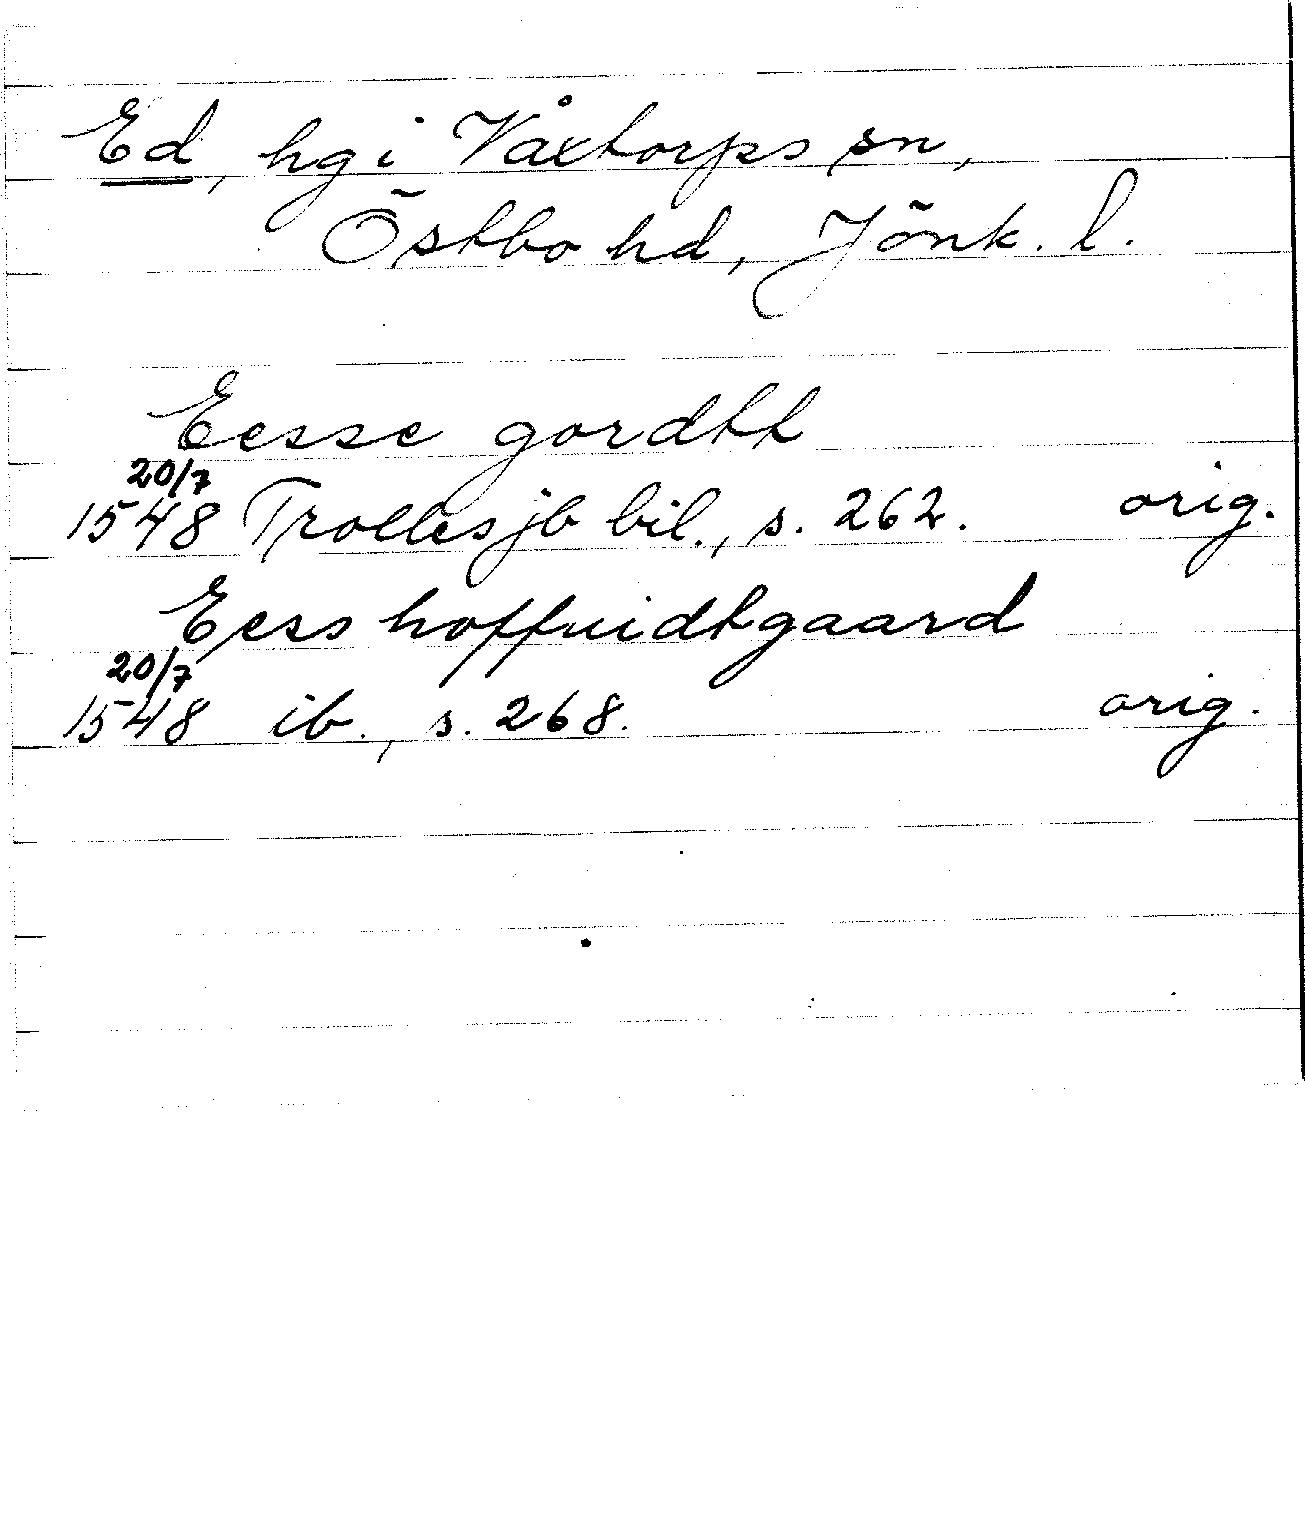 Ed, hg i Våxtorps sn,
Östbo hd, Jönk. l.
Eesse gordtt
20/7
1548 Trolles jb bil., s. 262. orig.
Eess hoffuidtgaard
20/7
1548 ib., s. 268. orig.